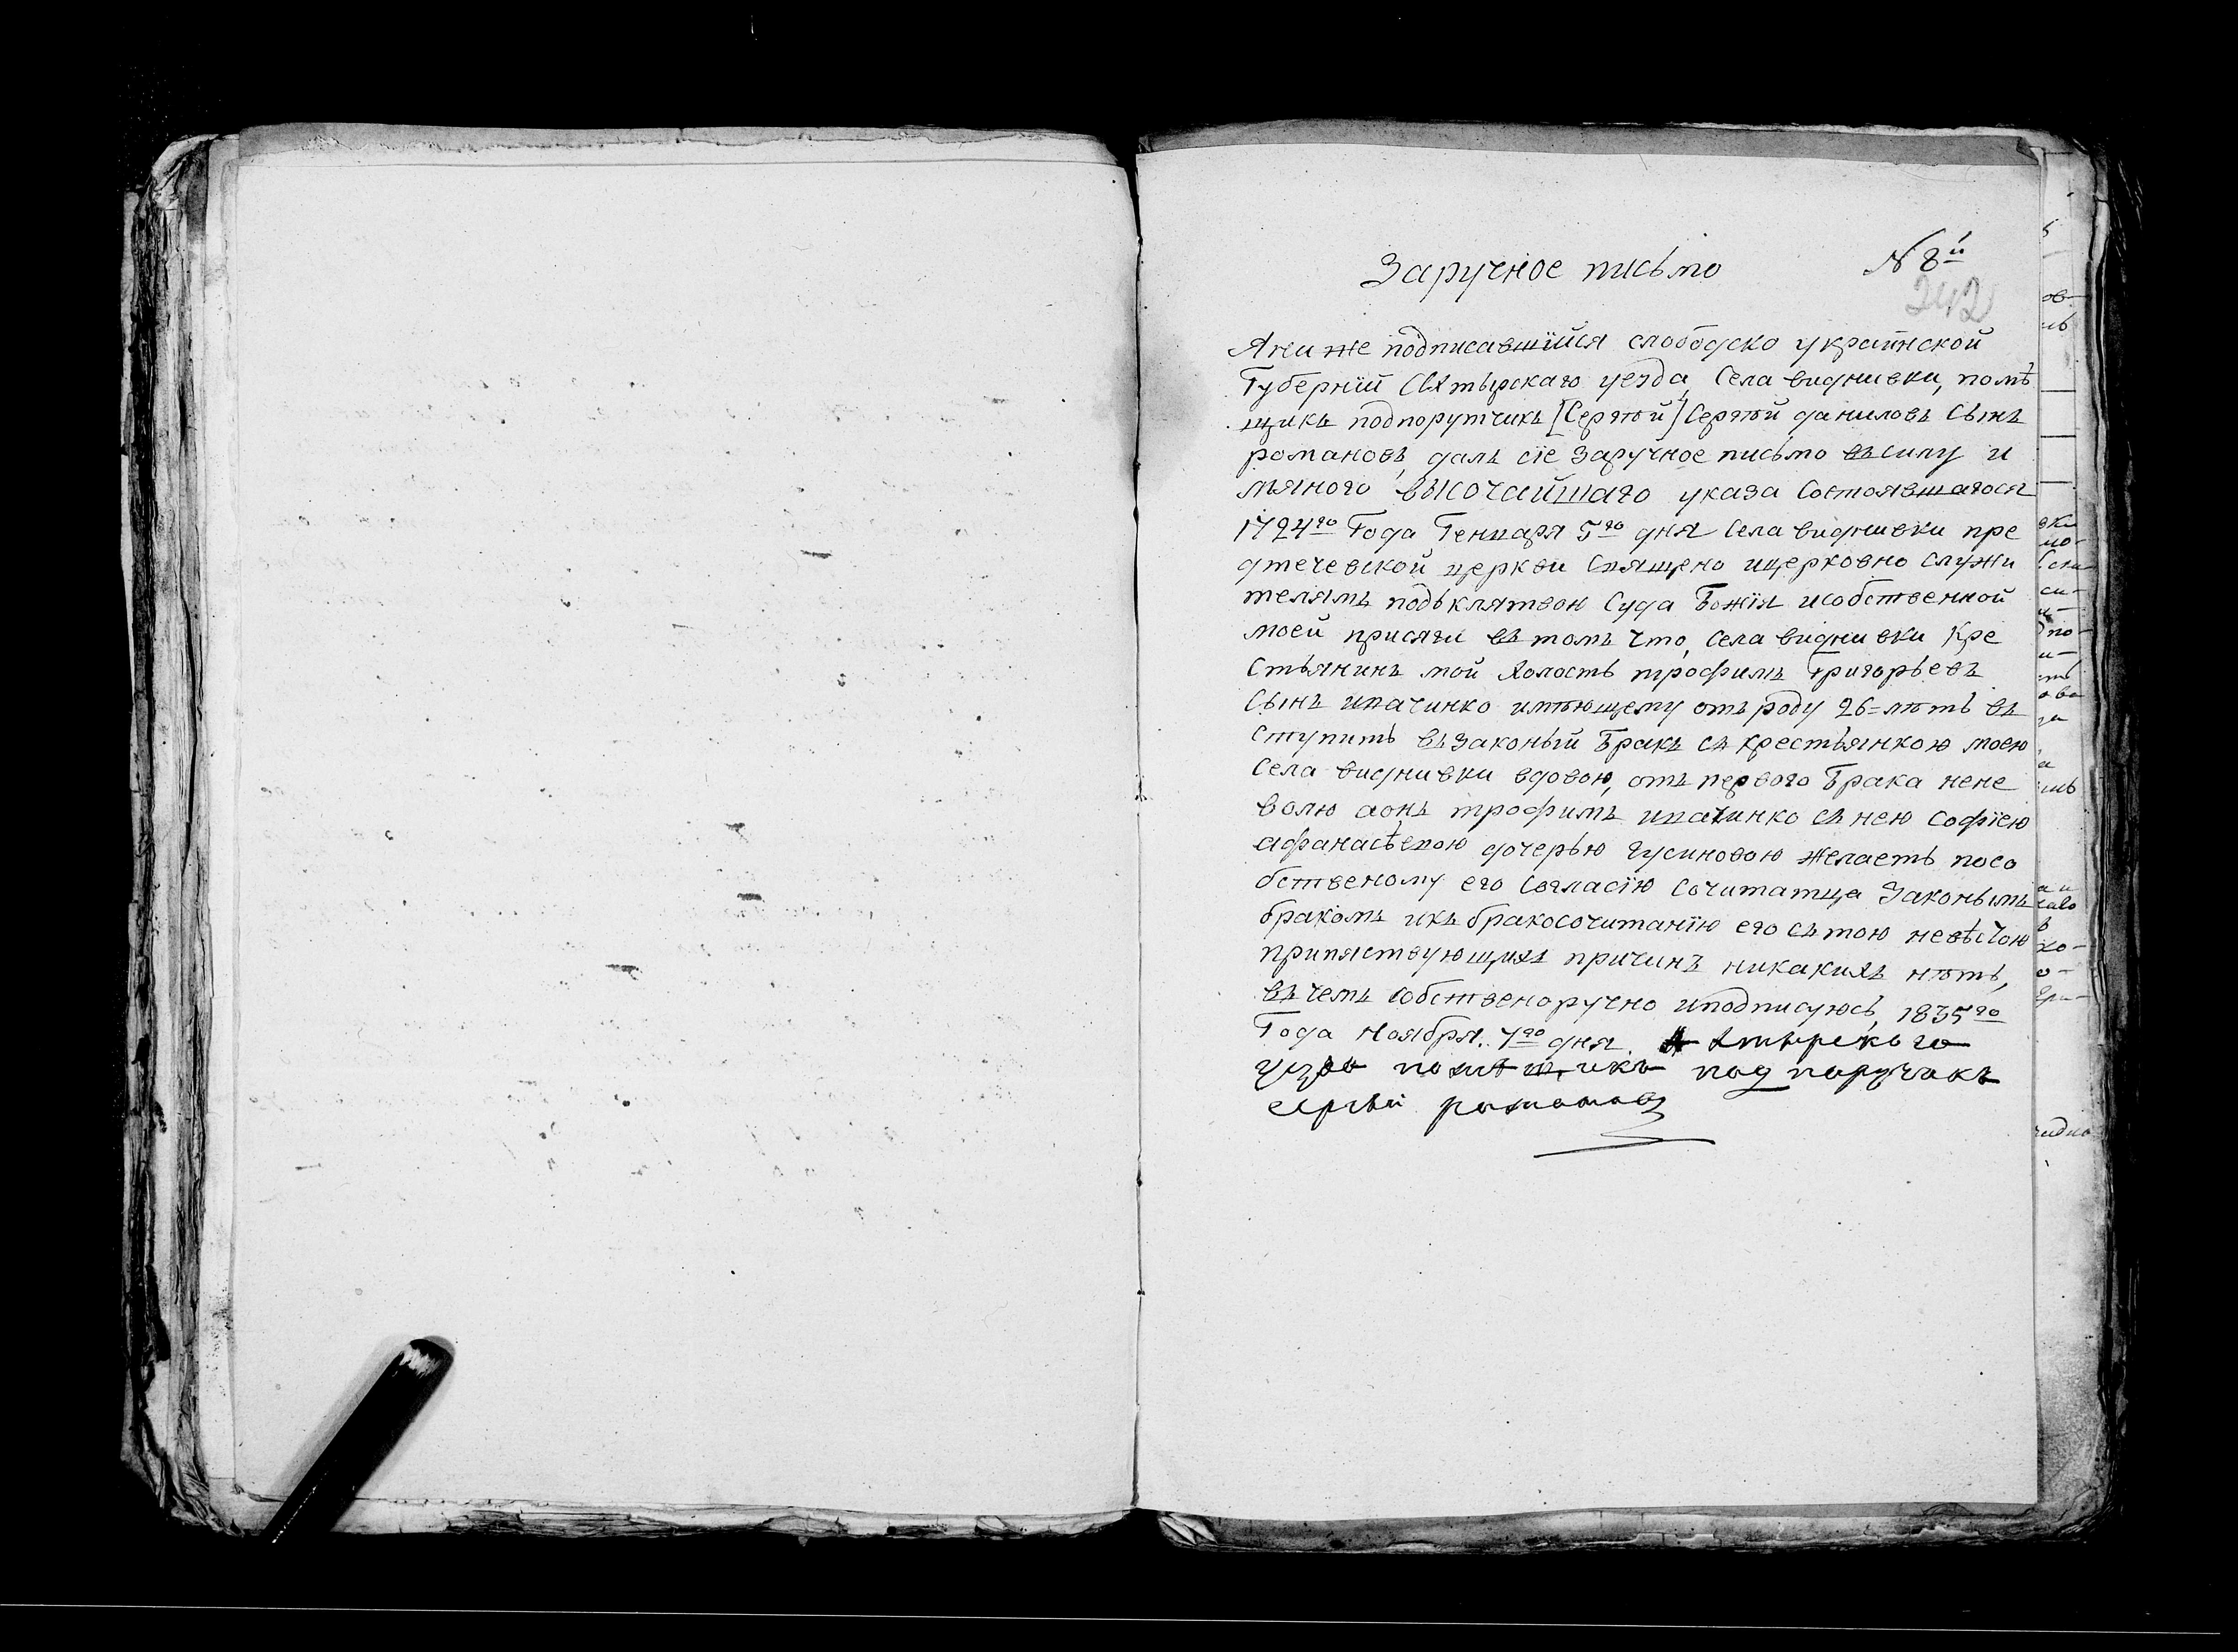 Заручное письмо № 8й
242
Я ниже подписавшійся слободско украинской
Губерніи Ахтырскаго уезда, Села видникви, помѣ
щикъ подпорутчикъ [Сергѣй] Сергѣй даниловъ Сынъ
романовъ, далъ сіе Заручное письмо въ силу и
мянного высочайшаго указа Состоявшагося
1724го Года Генваря 5го дня Села виднивки пре
дтечевской церкви Священо ицерковно служи
телямъ подъ клятвою Суда Божія исобственной
моей присяги въ томъ что, Села виднивки Кре
Стьянинъ мой Холость трофимъ Григорьевъ
Сынъ ипачинко имѣющему отъ роду 26=лѣтъ въ
Ступить въ законый Бракъ съ крестьянкою моею
Села виднивки вдовою, отъ первого Брака нене
волю аонъ трофимъ ипачинко съ нею Софіею
афанасѣвою дочерью гусиновою желаеть посо
бственому его Согласію Сочитатца Законымъ
бракомъ икъ бракосочитанію его сътою невѣстою
припяствующихъ причинъ никакихъ нѣтъ,
въ чемъ Собственоручно иподписуюсь, 1835го
Года Ноября. 7го дня. Ахтырского
уезда помѣщикъ под поручикъ
сергѣй романовъ